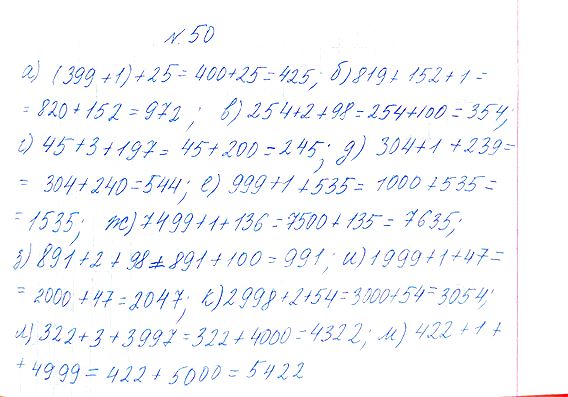 № 50
а) (399+1)+25=400+25=425; б) 819+152+1=
=820+152=972; в) 254+2+98=254+100=354;
г) 45+3+197=45+200=245; д) 304+1+239=
= 304+240=544; е) 999+1+535=1000+535=
=1535; ж) 7499+1+136=7500+135=7635;
з) 891+2+98=891+100=991; и) 1999+1+47=
=2000+47=2047; к) 2998+2+54=3000+54=3054;
л) 322+3+3997=322+4000=4322; м) 422+1+
+4999=422+5000=5422